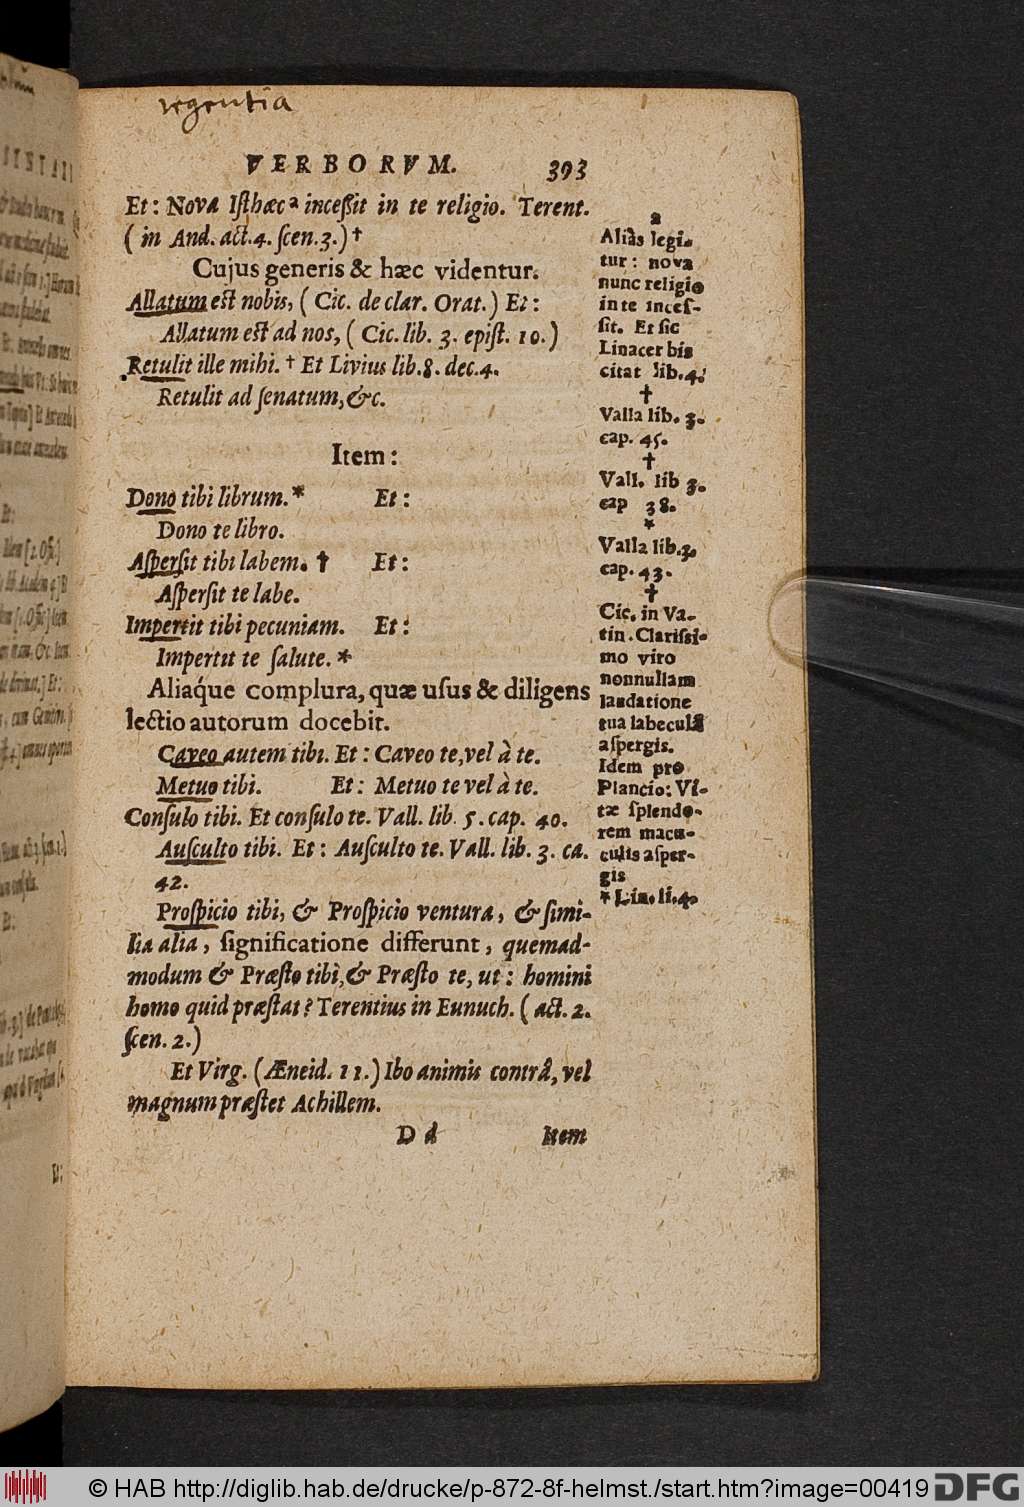 regentia
VERBORVM. 393
Et: Nova Iſthæc ᵃ inceßit in te religio. Terent.
( in And. act. 4. ſcen. 3.) †
Cujus generis & hæc videntur.
Allatum eſt nobis, ( Cic. de clar. Orat.) Et:
Allatum eſt ad nos, ( Cic. lib. 3. epiſt. 10.)
Retulit ille mihi. † Et Livius lib. 8. dec. 4.
Retulit ad ſenatum, &c.
Item:
Dono tibi librum. * Et:
Dono te libro.
Aſperſit tibi labem. † Et:
Aſperſit te labe.
Impertit tibi pecuniam. Et:
Impertit te ſalute. *
Aliaq́ue complura, quæ uſus & diligens
lectio autorum docebit.
Caveo autem tibi. Et: Caveo te, vel à te.
Metuo tibi. Et: Metuo te vel à te.
Conſulo tibi. Et conſulo te. Vall. lib. 5. cap. 40.
Auſculto tibi. Et: Auſculto te. Vall. lib. 3. ca.
42.
Proſpicio tibi, & Proſpicio ventura, & ſimi-
lia alia, ſignificatione differunt, quemad-
modum & Præſto tibi, & Præſto te, ut: homini
homo quid præſtat? Terentius in Eunuch. ( act. 2.
ſcen. 2.)
Et Virg. (Æneid. 11.) Ibo animis contrâ, vel
magnum præſtet Achillem.
D d Item
a
Aliàs legi-
tur: nova
nunc religio
in te inceſ-
ſit. Et ſic
Linacer bis
citat lib. 4.
†
Valla lib. 3.
cap. 45.
†
Vall. lib 3.
cap 38.
*
Valla lib. 3.
cap. 43.
†
Cic. in Va-
tin. Clariſsi-
mo viro
nonnullam
laudatione
tua labeculā
aſpergis.
Idem pro
Plancio: Vi-
tæ ſplendo-
rem macu-
culis aſper-
gis
* Lin. li. 4.
© HAB http://diglib.hab.de/drucke/p-872-8f-helmst./start.htm?image=00419
DFG